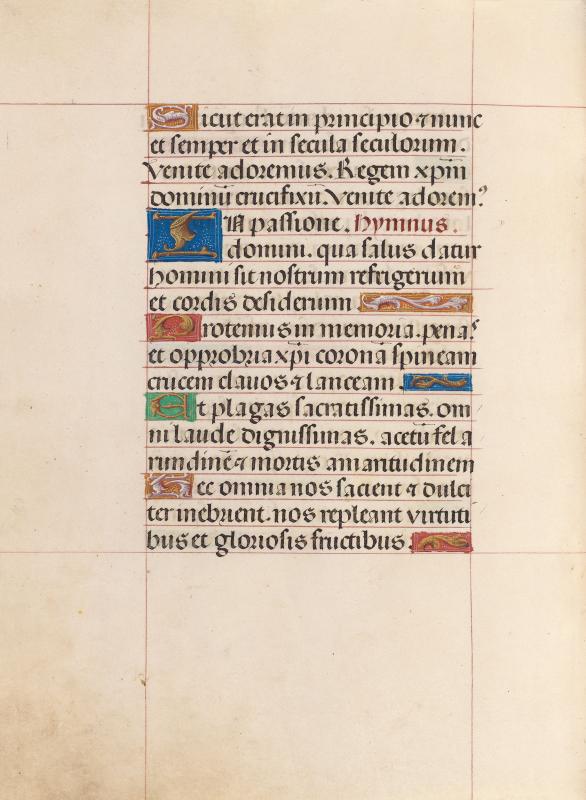 Sicut erat in principio ⁊ nunc
et semper et in secula seculorum.
Venite adoremus. Regem xp̄m
dominū crucifixū. Venite adorem᷒
IN passione. Hymnus.
domini. qua salus datur
homini sit nostrum refrigerium
et cordis desiderium
Portemus in memoria. pena᷒
et opprobria xp̄i coronā spineam
crucem clavos ⁊ lanceam.
Et plagas sacratissimas. om
ni laude dignissimas. acetū fel a
rundinē ⁊ mortis amaritudinem
Hec omnia nos sacient ⁊ dulci
ter inebrient. nos repleant virtuti
bus et gloriosis fructibus.